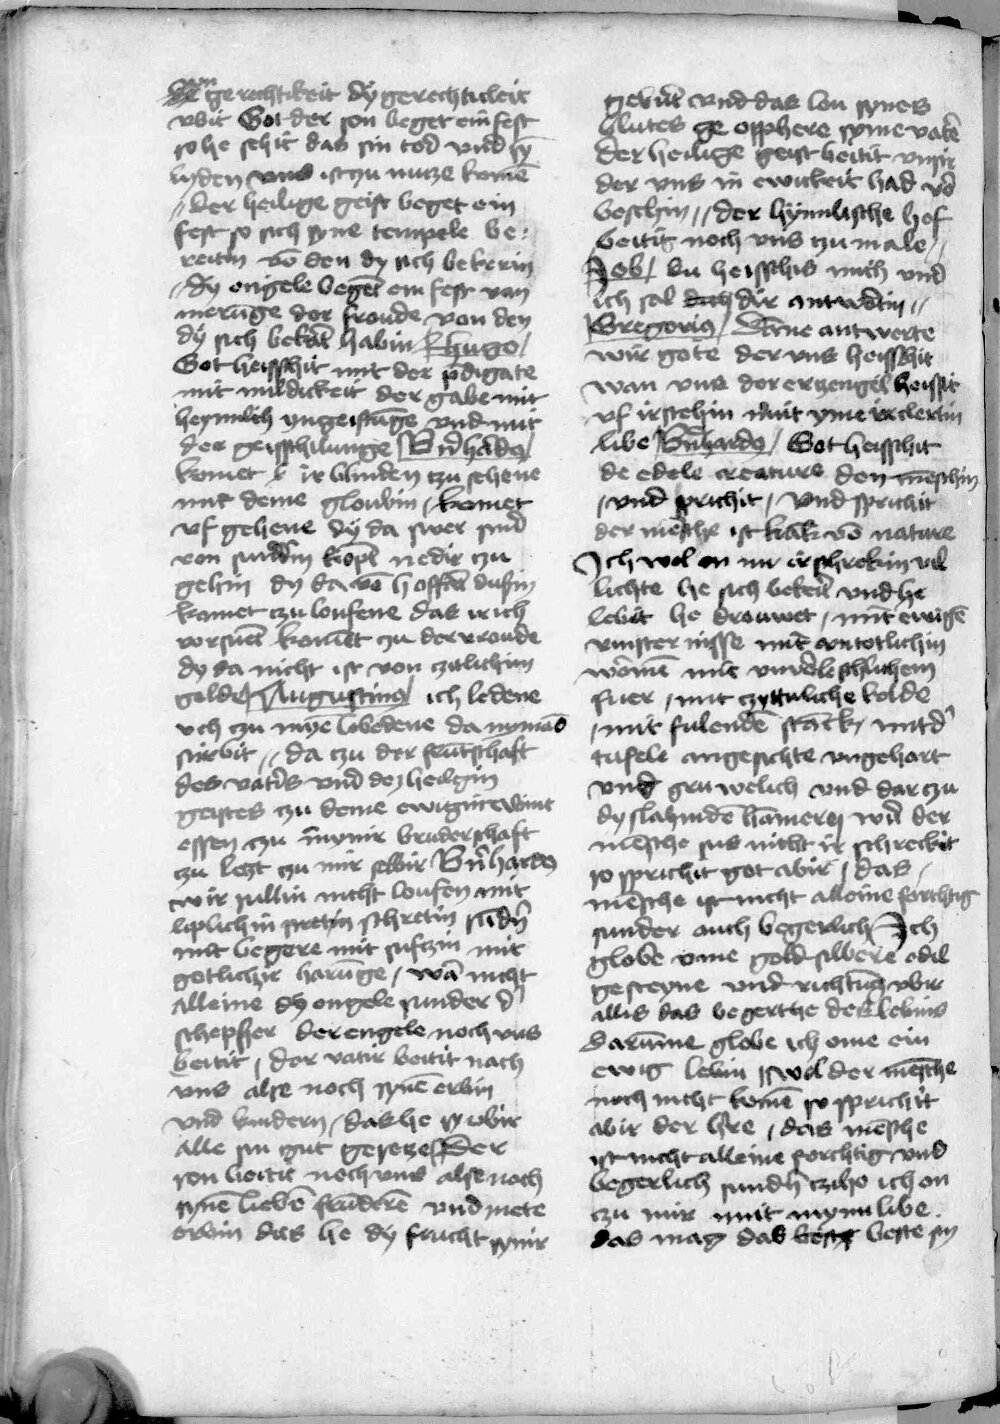 von
gerechtikeit dÿ gerechticleit
vbit Got der son beget ein fest
so he sehit das sin tod vnd sÿ
lyden vns ist czu nutze komē
der heilige geist beget ein
fest so sich syne tempele be
reitin vō den dy sich bekerin
dÿ engele begēt ein fest van
merūge der froude von den
dÿ sich bekāt habin Hugo
Got heisschit mit der p̄digate
mit mildickeit der gabe mit
heymlich yngeistūge vnd mit
der geisschilunge Bn̄hādꝯ
komet ir blinden czu sehene
mit deme gloubin komet
vf gehene dÿ da swer sind
von sundin nedir czu
gehin dy da vō hoffāt
komet czu loufene das ir ich
vorsūet komet czu der vroude
dy da nicht ist von czitlichim
golde Augustinꝯ ich ledene
uch czu mÿe lebedene da nymād
stirbit da czu der frūtschaft
des vatirs vnd des heilgin
geistes czu deme ewigin obint
essen czu mynir bruderschaft
czu letzt czu mir selbir Bn̄hardꝯ
wir sullin nicht loufen mit
liplichin schretin sūdn̄
mit begere mit sufczin mit
gotlichir harūge wā nicht
alleine dÿ engele sunder d'
schepfer der engele noch vns
beitit der vatir beitit nach
vns alse noch synē erbin
vnd kindern das he sy vbir
alle sin gut gesetze Der
son beitit noch vns alse noch
synē liebē frūderē vnd mete
erbin das he dy frucht synir
geburt vnd das lon synes
blutes ge opphere syme vatē
der heilige geist beitit vnsir
der vns in ewickeit had vō
besehin der hÿmlische hof
beitit noch vns czu male
Job du heisschis mich vnd
ich sal dir antwortin
Gregoriꝯ Dāne antwerte
wir gote der vns heisschit
wan vns der erczengil heissit
vf irstehin mit yme irclertin
libe Bn̄hardꝯ Got heisschit
de edele creature den meschin
vnd sprichit vnd sprichit
der mēsche ist krāk vō nature
Ich wel on mir irschrekin vil
lichte he sich bekeit vnd he
lebit he drouwet mit ewigē
vinster nisse mit vntotlichin
wormē mit vnvorleschlichem
fuer mit czyttirliche kolde
mit fulendē stāck mitd'
tufele angesichte vngehort
vnd gruwelich vnd dar czu
dy slahindē hāmere wn̄ der
mēsche sus nicht ir schreckit
so sprichit got abir das
mēsche ist nicht alleine forchtig
sunder auch begerlich Ich
globe yme gold silbere edil
gesteyne vnd richtūg vbir
allis das begerthe des lebins
Darūme globe ich ome ein
ewig lebin wel der mēsche
noch nicht komē so sprichit
abir der hʳre das mēsche
ist nicht alleine forchtig vnd
begerlich sundn̄ cziho ich on
czu mir mit mynn libe
das mag das beste sy